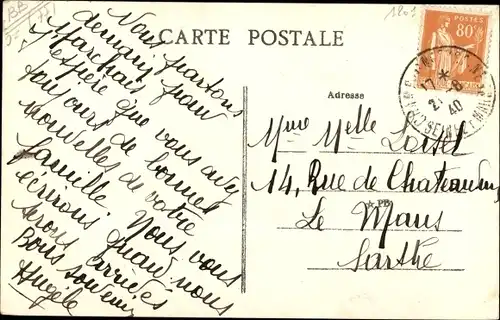 CARTE POSTALE
Nous partons
demain pour
Marchais
j'espère que vous avez
toujours de bonnes
nouvelles de votre
famille. Nous vous
écrirons quand nous
serons arrivés
Bons souvenirs
Angèle
POSTES
80c
17 *
21-8
40
SEINE ET MARNE
Adresse
Mme Melle Loisel
14, Rue de Chateaudun
Le Mans
Sarthe